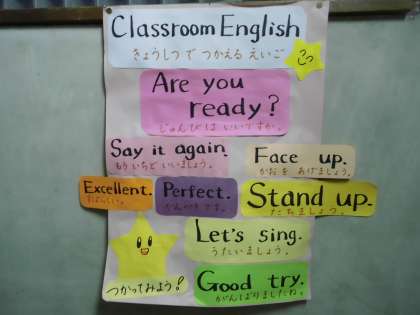 Classroom English
きょうしつ で つかえる えいご
Are you
ready?
じゅんび は いいですか。
Say it again.
もういちど いいましょう。
Face up.
かおを あげましょう。
Excellent.
すばらしい。
Perfect.
かんぺきです。
Stand up.
たちましょう。
Let's sing.
うたいましょう。
つかってみよう!
Good try.
がんばりましたね。